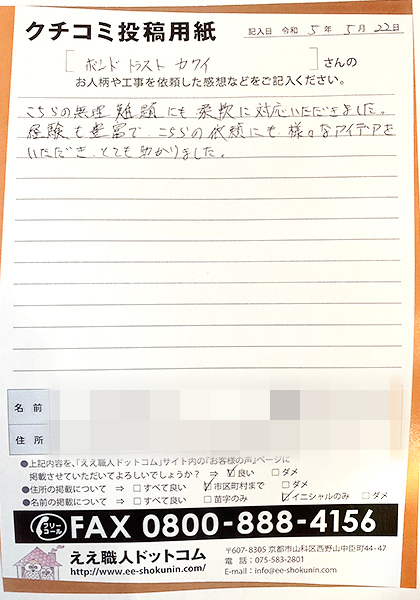 クチコミ投稿用紙
記入日 令和 5年 5月 22日
[ボンド トラスト カワイ]さんの
お人柄や工事を依頼した感想などをご記入ください。
こちらの無理難題にも柔軟に対応いただきました。
経験も豊富で、こちらの依頼にも様々なアイデアを
いただき、とても助かりました。
名前
住所
●上記内容を、「ええ職人ドットコム」サイト内の『お客様の声』ページに
掲載させていただいてよろしいでしょうか? ⇒ ☑良い □ダメ
●住所の掲載について ⇒ □すべて良い ☑市区町村まで □ダメ
●名前の掲載について ⇒ □すべて良い □苗字のみ ☑イニシャルのみ □ダメ
フリーコール FAX 0800-888-4156
ええ職人ドットコム
http://www.ee-shokunin.com/
〒607-8305 京都市山科区西野山中臣町44-47
電話:075-583-2801
E-mail:info@ee-shokunin.com